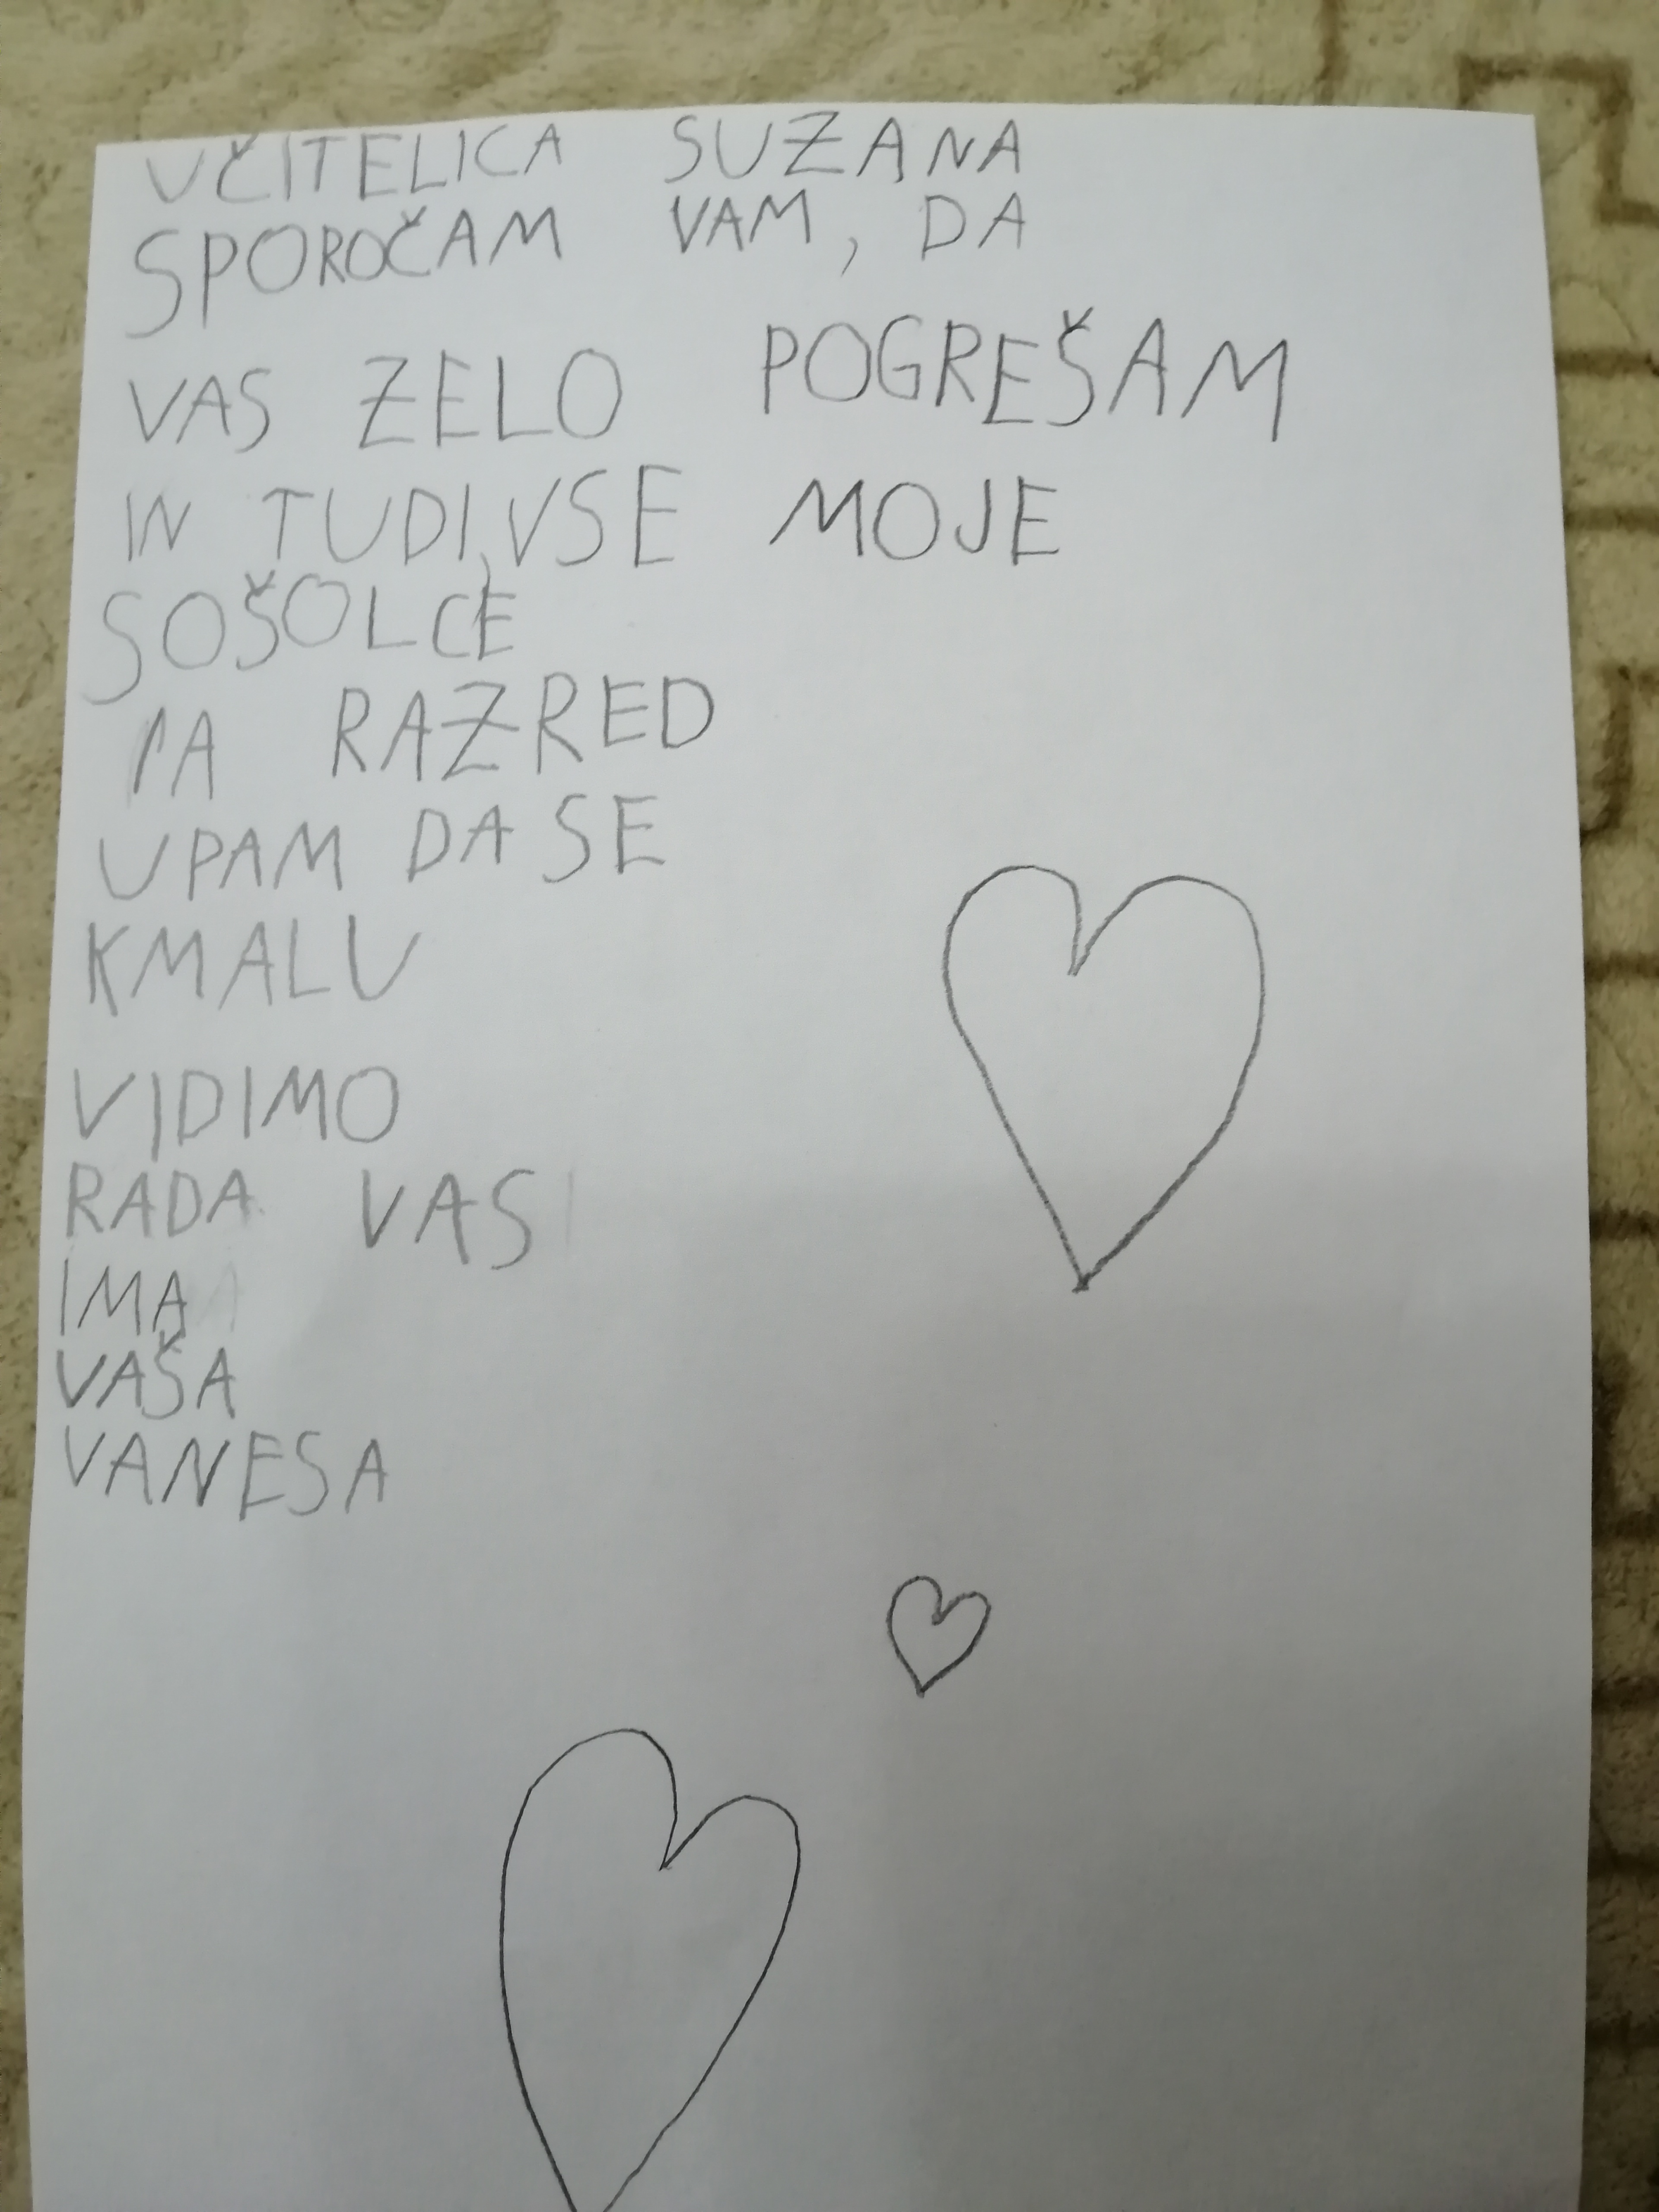 UČITELICA SUZANA
SPOROČAM VAM, DA
VAS ZELO POGREŠAM
IN TUDI, VSE MOJE
SOŠOLCE
1A RAZRED
UPAM DA SE
KMALU
VIDIMO
RADA VAS
IMA
VAŠA
VANESA